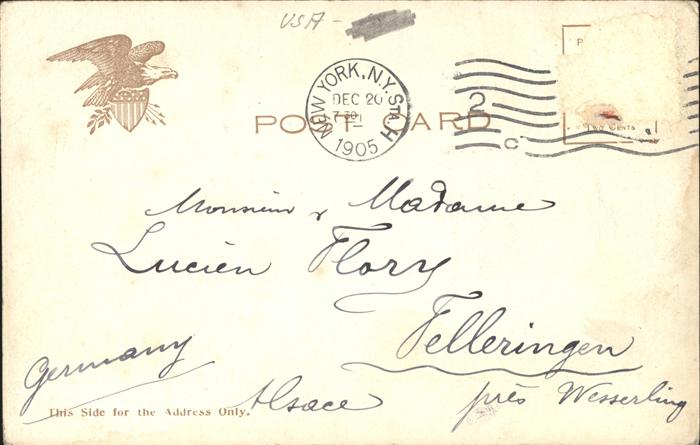 USA -
NEW YORK, N.Y. STA H
DEC 20
7 30
1905
2
C
POST CARD
P
TWO CENTS
Monsieur & Madame
Lucien Flory
Felleringen
Germany
Alsace près Wesserling
This Side for the Address Only.